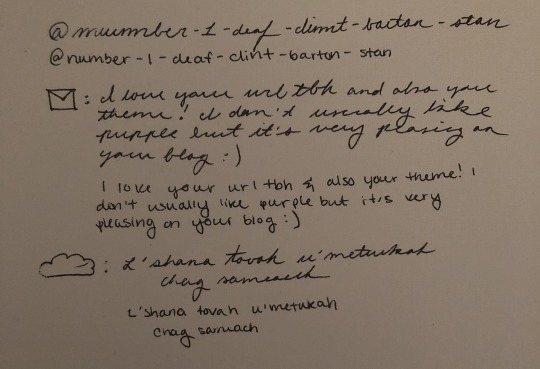 @number-1-deaf-clint-barton-stan
@number-1-deaf-clint-barton-stan
: I love your url tbh and also your
theme! I don't usually like
purple but it's very pleasing on
your blog :)
I love your url tbh & also your theme! I
don't usually like purple but it's very
pleasing on your blog :)
: L'shana tovah u'metukah
chag sameach
L'shana tovah u'metukah
chag samach